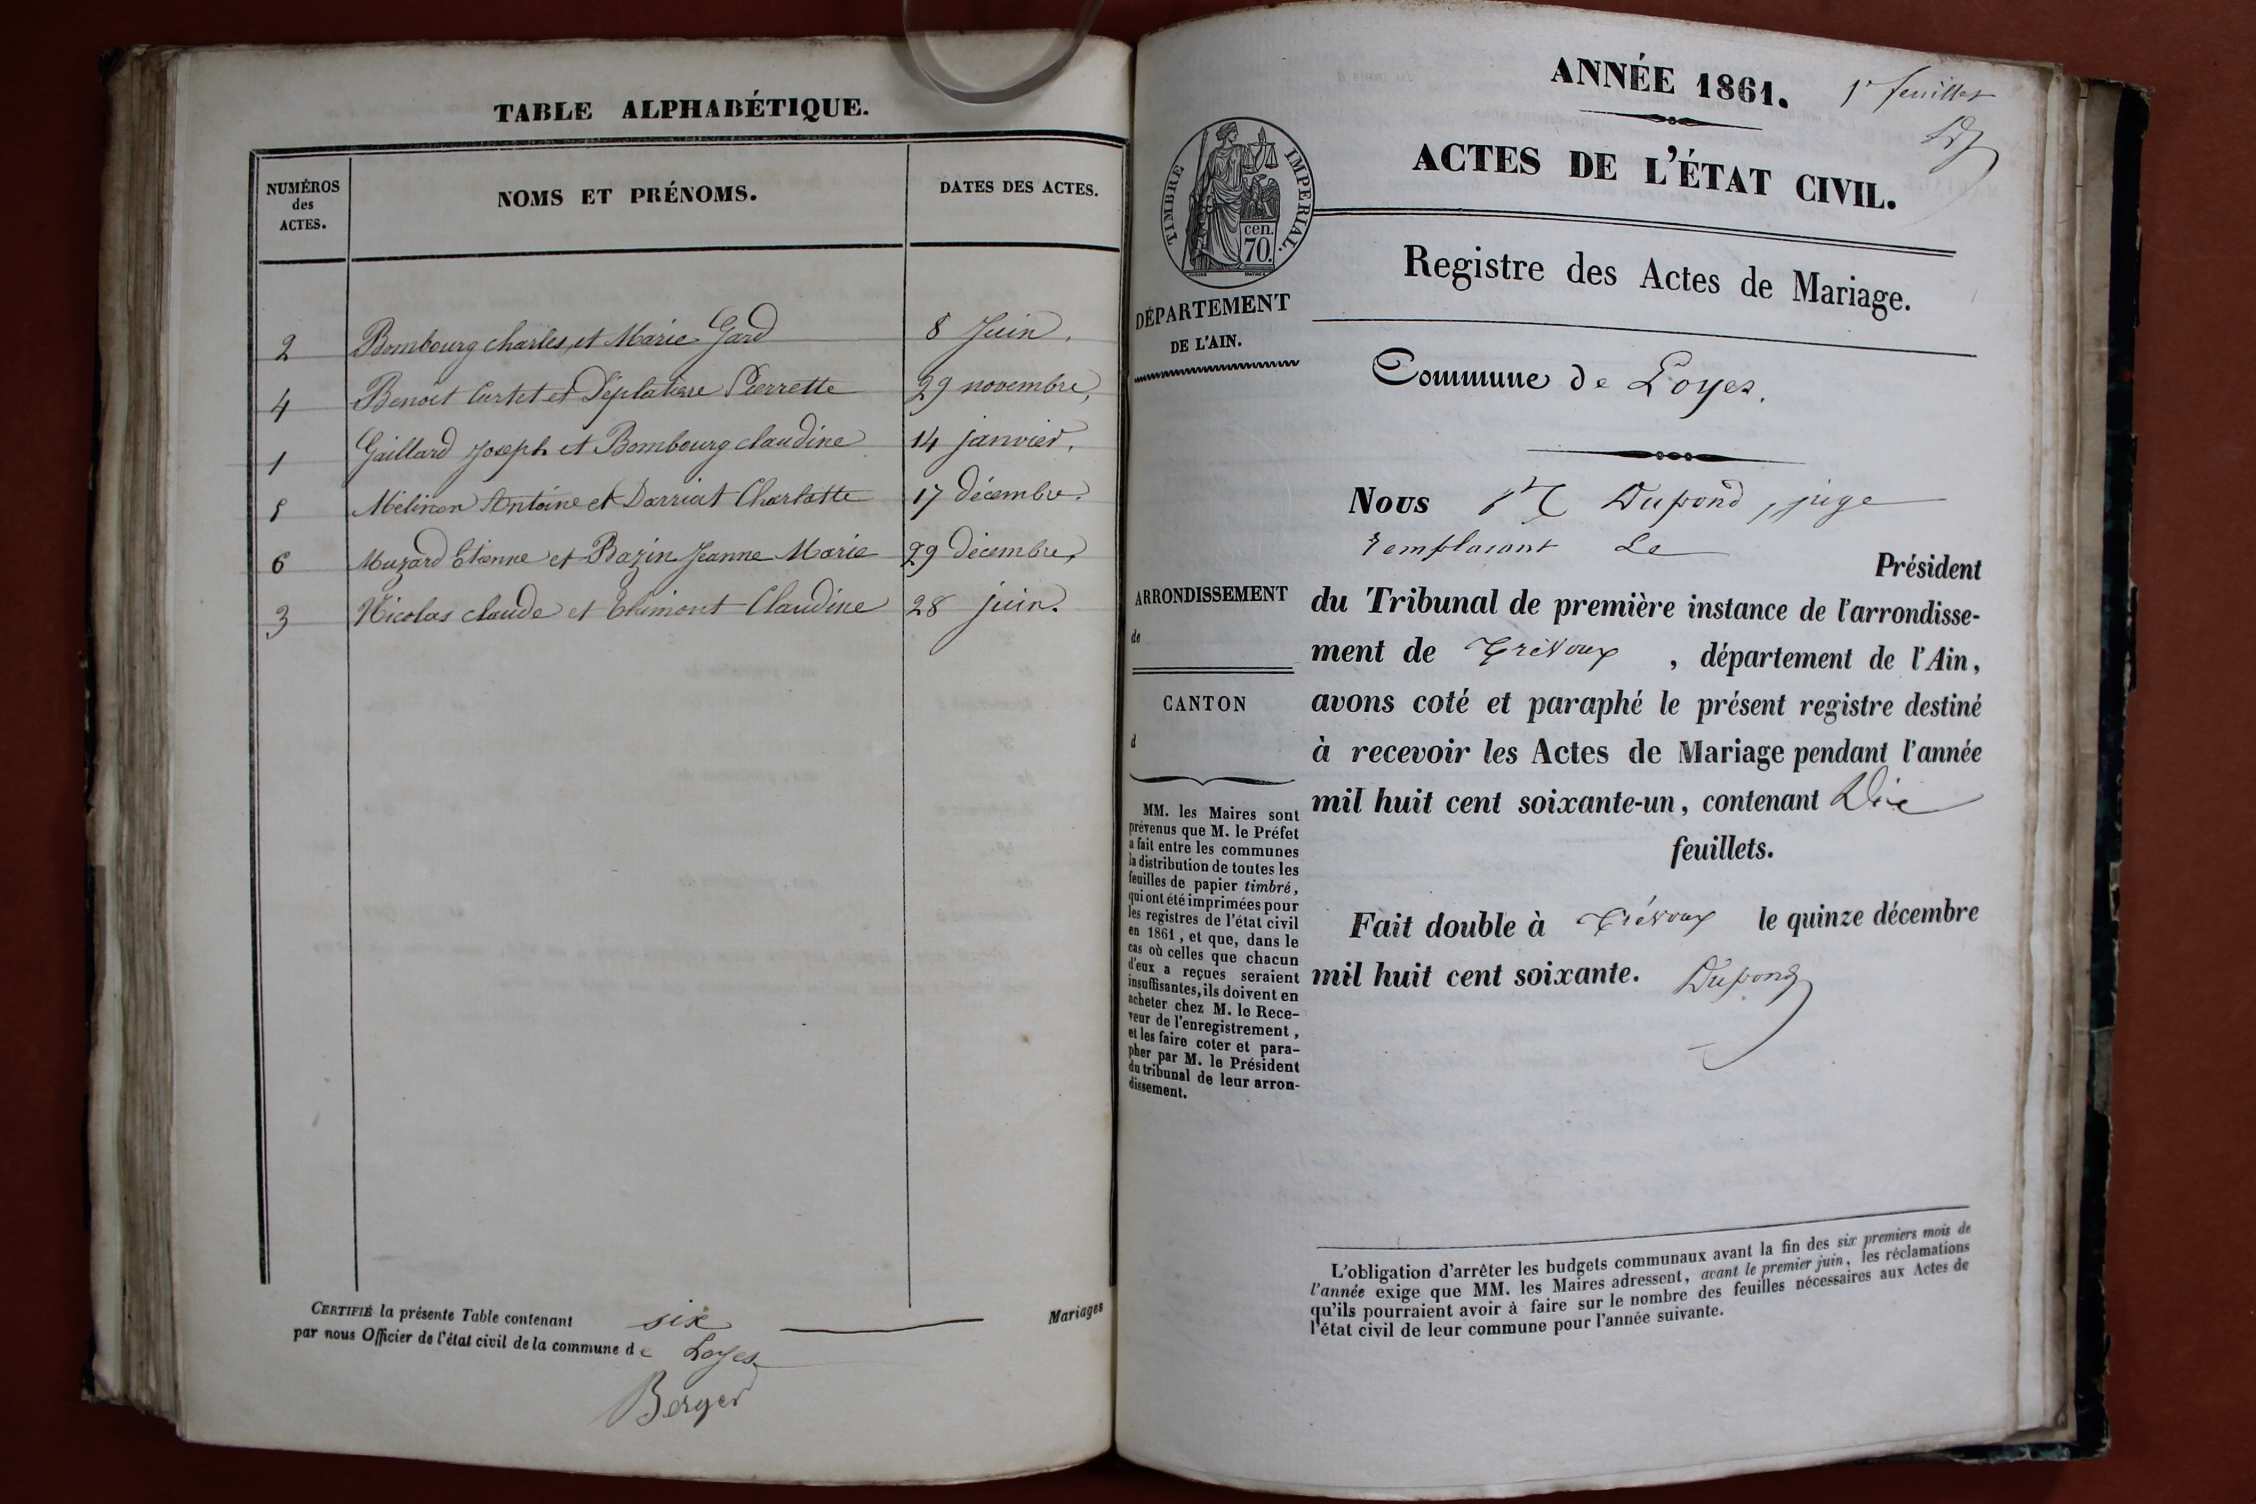 TABLE ALPHABÉTIQUE.
NUMÉROS des ACTES.
NOMS ET PRÉNOMS.
DATES DES ACTES.
2 Bombourg charles, et Marie Gard 8 Juin.
4 Benoit Curtet et Déplatière Pierrette 29 novembre,
1 Gaillard Joseph et Bombourg claudine 14 janvier,
5 Mélinon Antoine et Darriat Charlotte 17 décembre.
6 Muzard Etienne et Bazin Jeanne Marie 29 décembre,
3 Nicolas claude et Thimont Claudine 28 juin.
CERTIFIÉ la présente Table contenant six Mariages
par nous Officier de l'état civil de la commune de Loyes
Berger
ANNÉE 1861.
1r feuillet
ACTES DE L'ÉTAT CIVIL.
TIMBRE IMPERIAL.
cen.
70.
Registre des Actes de Mariage.
DÉPARTEMENT
DE L'AIN.
Commune de Loyes.
Nous Dupond, juge
remplacant Le
Président
ARRONDISSEMENT
de
CANTON
d
du Tribunal de première instance de l'arrondisse-
ment de Trévoux, département de l'Ain,
avons coté et paraphé le présent registre destiné
à recevoir les Actes de Mariage pendant l'année
mil huit cent soixante-un, contenant Dix
feuillets.
Fait double à Trévoux le quinze décembre
mil huit cent soixante. Dupond
MM. les Maires sont
prévenus que M. le Préfet
a fait entre les communes
la distribution de toutes les
feuilles de papier timbré,
qui ont été imprimées pour
les registres de l'état civil
en 1861, et que, dans le
cas où celles que chacun
d'eux a reçues seraient
insuffisantes, ils doivent en
acheter chez M. le Rece-
veur de l'enregistrement,
et les faire coter et para-
pher par M. le Président
du tribunal de leur arron-
dissement.
L'obligation d'arrêter les budgets communaux avant la fin des six premiers mois de
l'année exige que MM. les Maires adressent, avant le premier juin, les réclamations
qu'ils pourraient avoir à faire sur le nombre des feuilles nécessaires aux Actes de
l'état civil de leur commune pour l'année suivante.